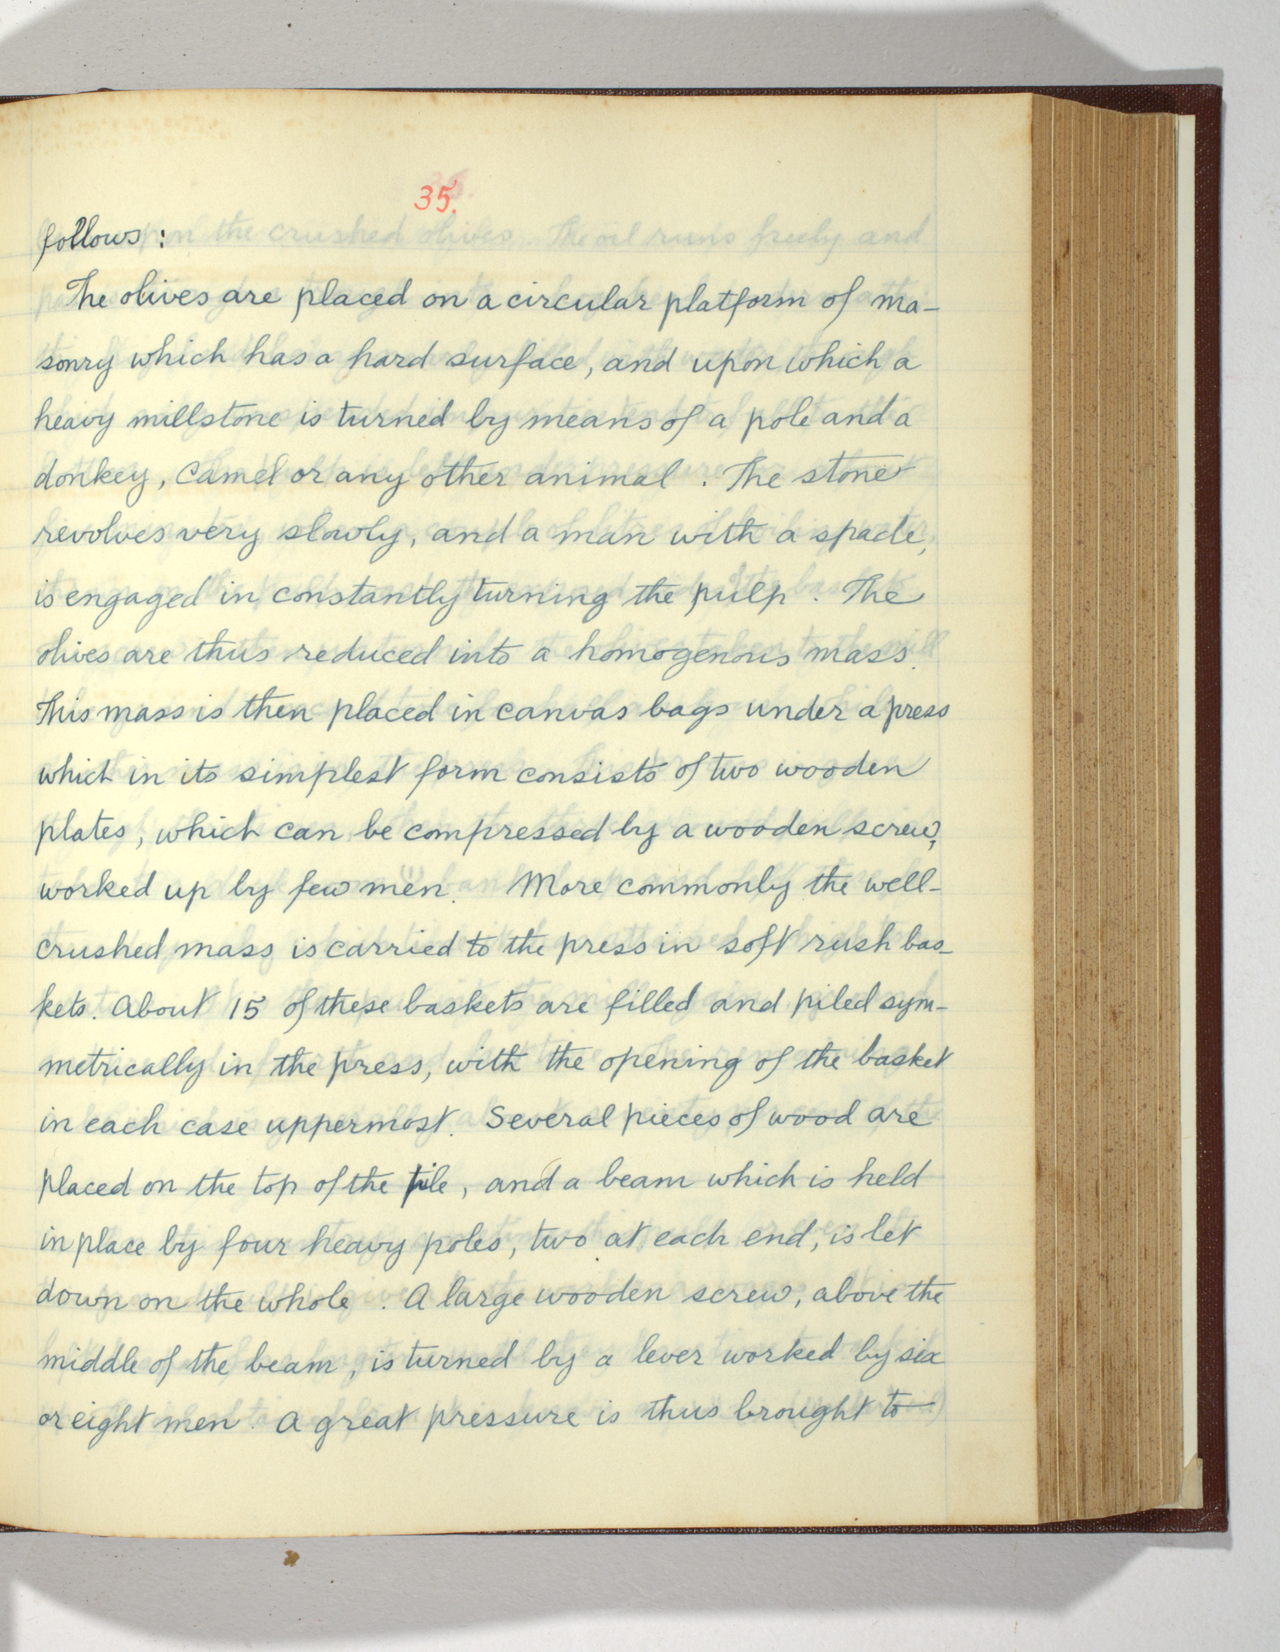 35.
follows:
The olives are placed on a circular platform of ma-
sonry which has a hard surface, and upon which a
heavy millstone is turned by means of a pole and a
donkey, Camel or any other animal. The stone
revolves very slowly, and a man with a spade,
is engaged in constantly turning the pulp. The
olives are thus reduced into a homogenous mass.
This mass is then placed in canvas bags under a press
which in its simplest form consists of two wooden
plates, which can be compressed by a wooden screw,
worked up by few men. More commonly the well-
crushed mass is carried to the press in soft rush bas-
kets. About 15 of these baskets are filled and piled sym-
metrically in the press, with the opening of the basket
in each case uppermost. Several pieces of wood are
placed on the top of the pile, and a beam which is held
in place by four heavy poles, two at each end, is let
down on the whole. A large wooden screw, above the
middle of the beam, is turned by a lever worked by six
or eight men. A great pressure is thus brought to